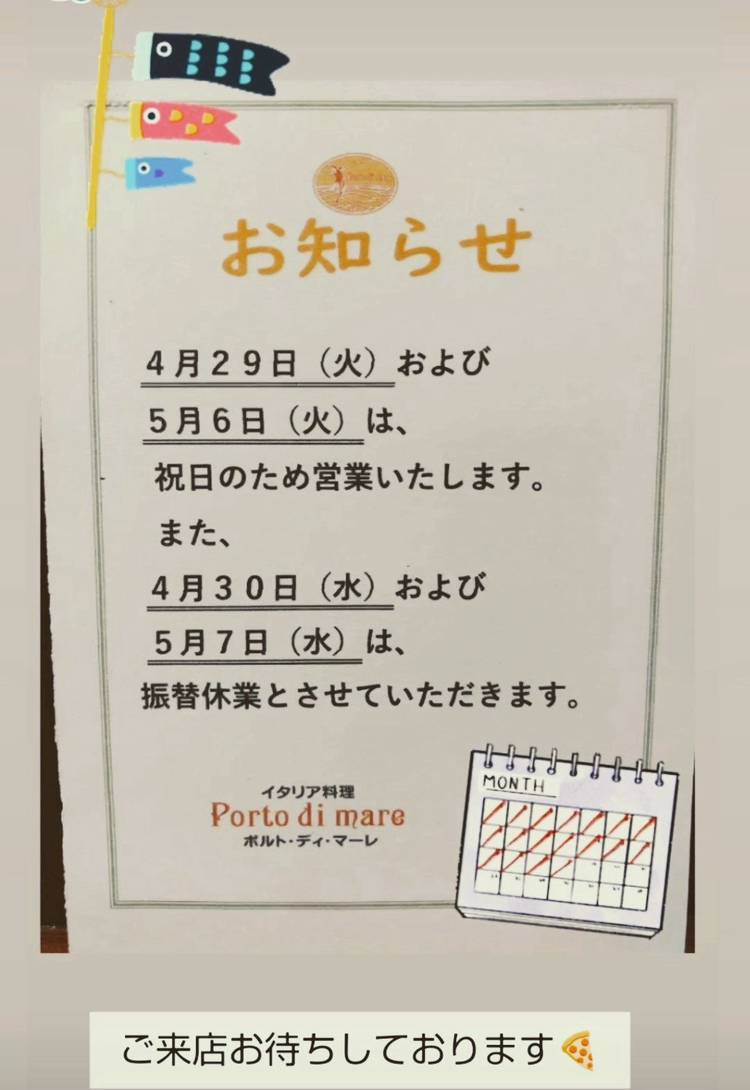 お知らせ
4月29日（火）および
5月6日（火）は、
祝日のため営業いたします。
また、
4月30日（水）および
5月7日（水）は、
振替休業とさせていただきます。
イタリア料理
Porto di mare
ポルト・ディ・マーレ
MONTH
ご来店お待ちしております🍕